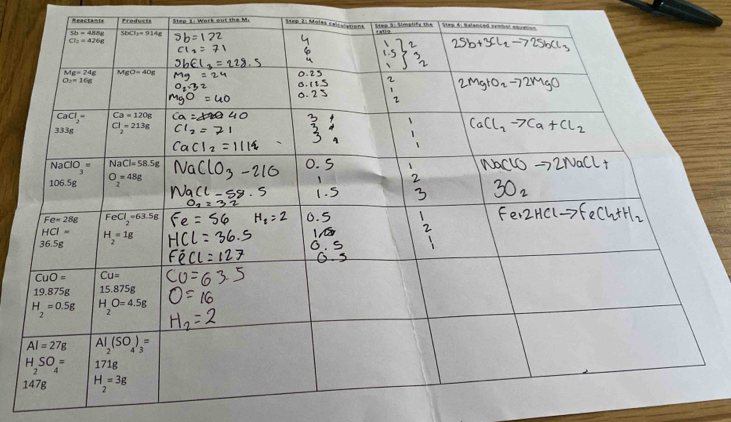 Reactants Products Step 1: Work out the Mr Step 2: Moles calculations Step 3: Simplify the ratio Step 4: Balanced symbol equation
Sb = 488g
Cl2 = 426g
SbCl3= 914g
Sb=122
Cl2 = 71
SbCl3 = 228.5
4
6
4
1 } 2
1.5 } 3
1 } 2
2Sb+3Cl2 → 2SbCl3
Mg= 24g
O2= 16g
MgO= 40g
Mg = 24
O2=32
MgO = 40
0.25
0.125
0.25
2
1
2
2MgtO2→2MgO
CaCl2 =
333g
Ca = 120g
Cl2 = 213g
Ca = 40
Cl2 = 71
CaCl2 = 111
3
3
3
1
1
1
CaCl2 → Ca + Cl2
NaClO3 =
106.5g
NaCl= 58.5g
O2 = 48g
NaClO3 – 216
NaCl – 58.5
O2 = 32
0.5
1
1.5
1
2
3
NaClO → 2NaCl +
3O2
Fe= 28g
HCl =
36.5g
FeCl2 =63.5g
H2 = 1g
Fe = 56 H2 = 2
HCl = 36.5
FeCl = 127
0.5
0.5
0.5
1
2
1
Fe+2HCl→FeCl2+H2
CuO =
19.875g
H2 = 0.5g
Cu=
15.875g
H2O= 4.5g
Cu = 63.5
O = 16
H2 = 2
Al = 27g
H2SO4 =
147g
Al2(SO4)3 =
171g
H2 = 3g